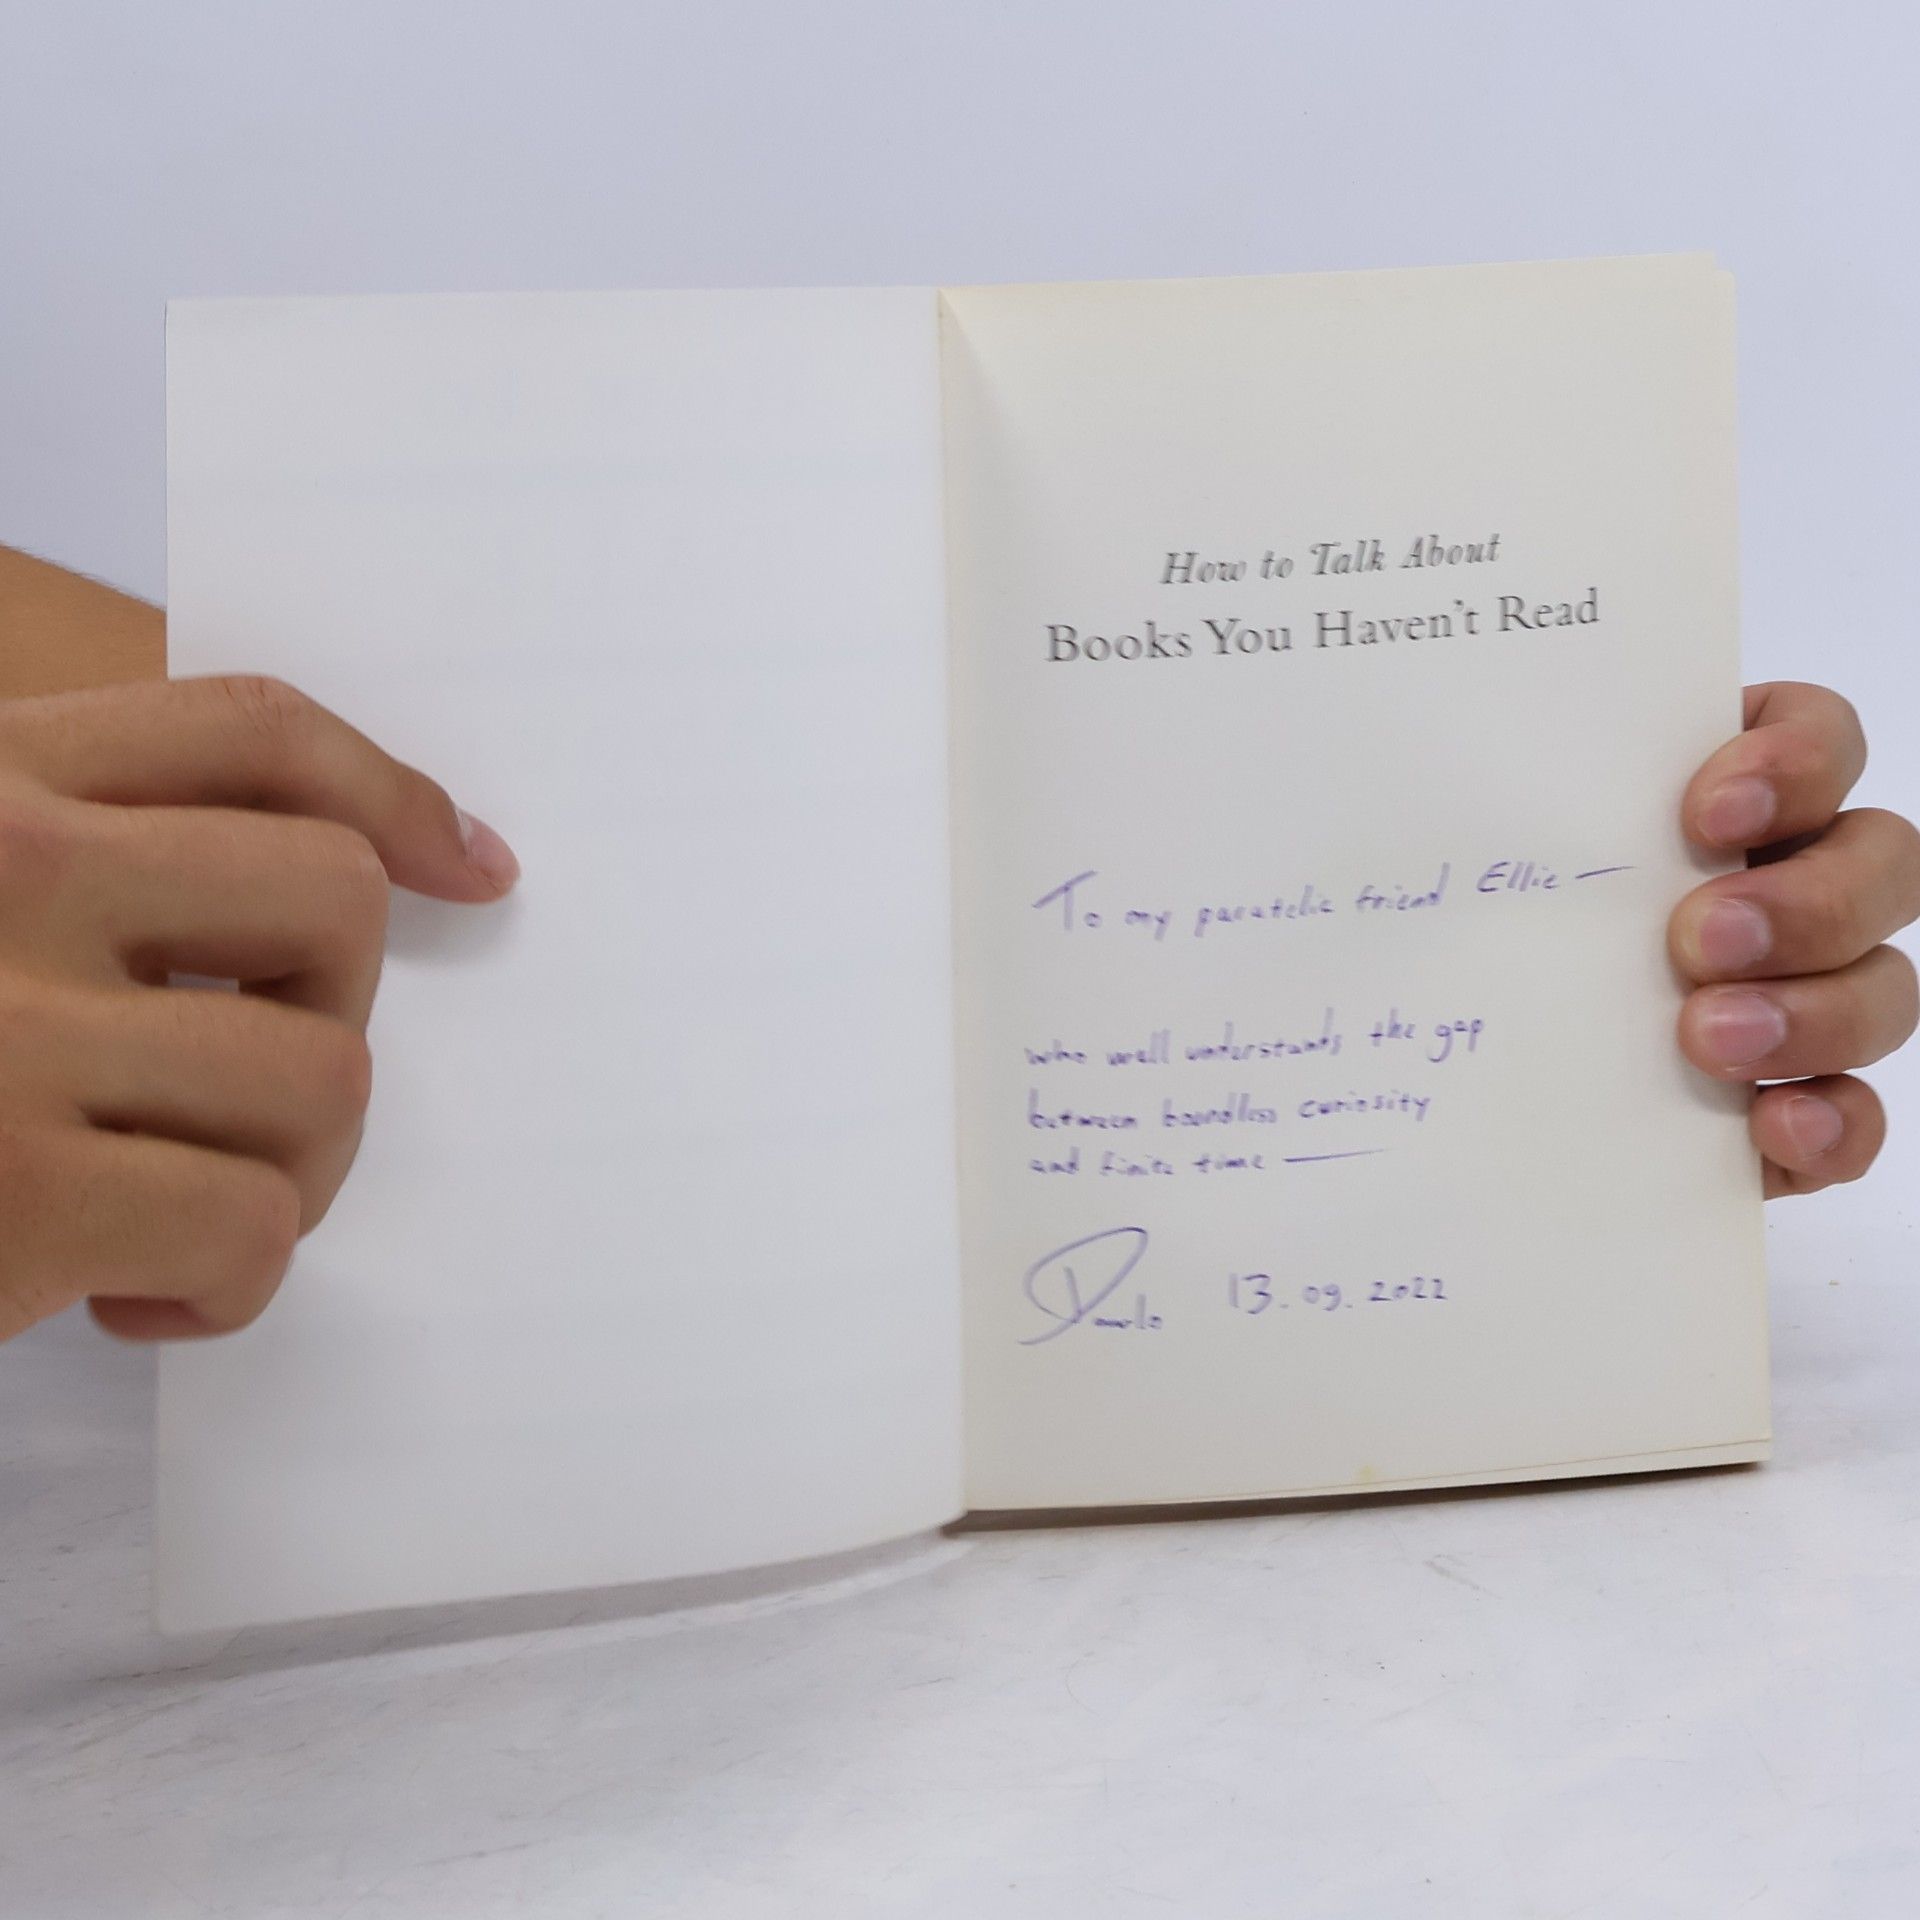 How to Talk About
Books You Haven't Read
To my paratelic friend Ellie —
who well understands the gap
between boundless curiosity
and finite time —
13.09.2022